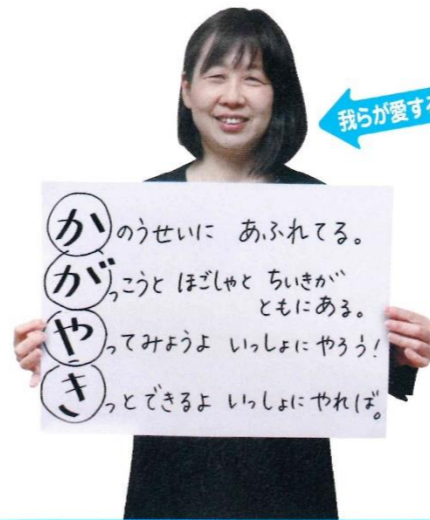 我らが愛する
かのうせいに あふれてる。
がっこうと ほごしゃと ちいきが
ともにある。
やってみようよ いっしょにやろう!
きっとできるよ いっしょにやれば。